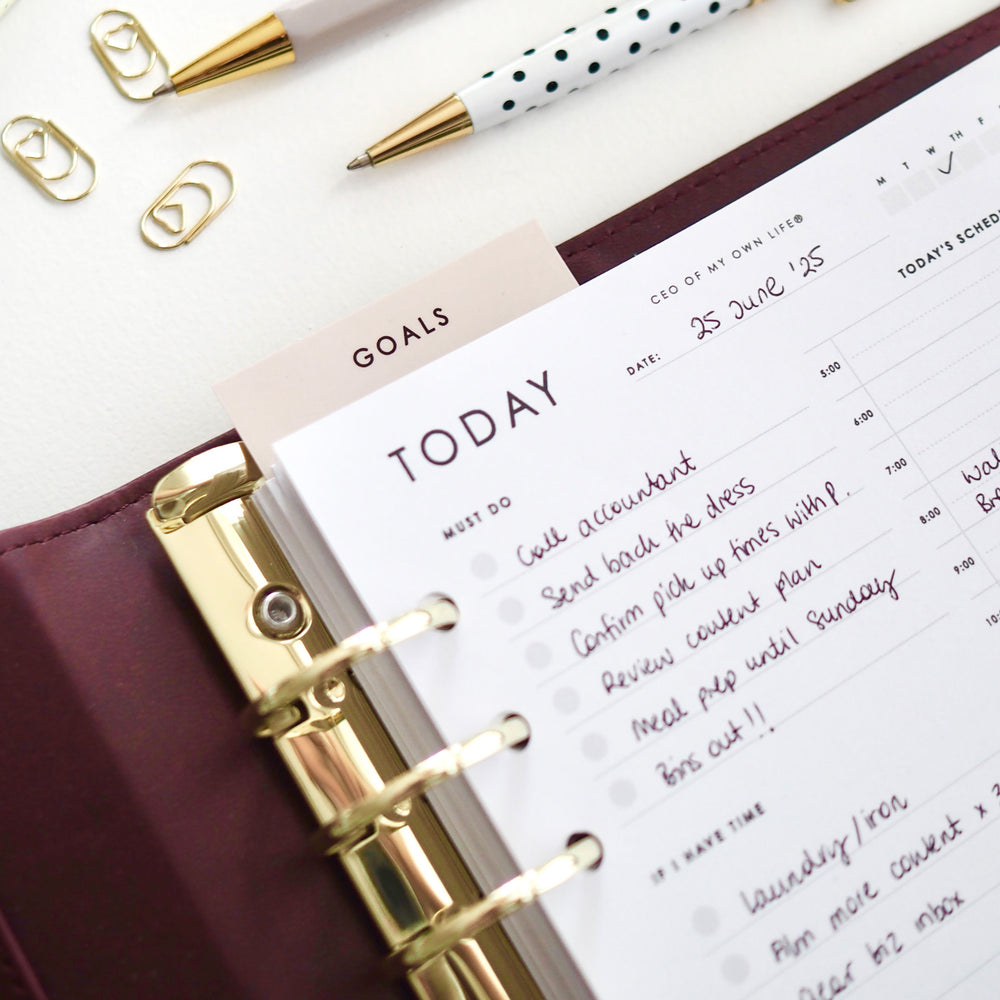 GOALS
CEO OF MY OWN LIFE®
M T W TH F
DATE: 25 June '25
TODAY
TODAY'S
MUST DO
Call accountant
Send back the dress
Confirm pick up times with P.
Review content plan
Meal prep until Sunday
Bins out!!
IF I HAVE TIME
Laundry/iron
Film more content x
biz inbox
5:00
6:00
7:00
8:00
9:00